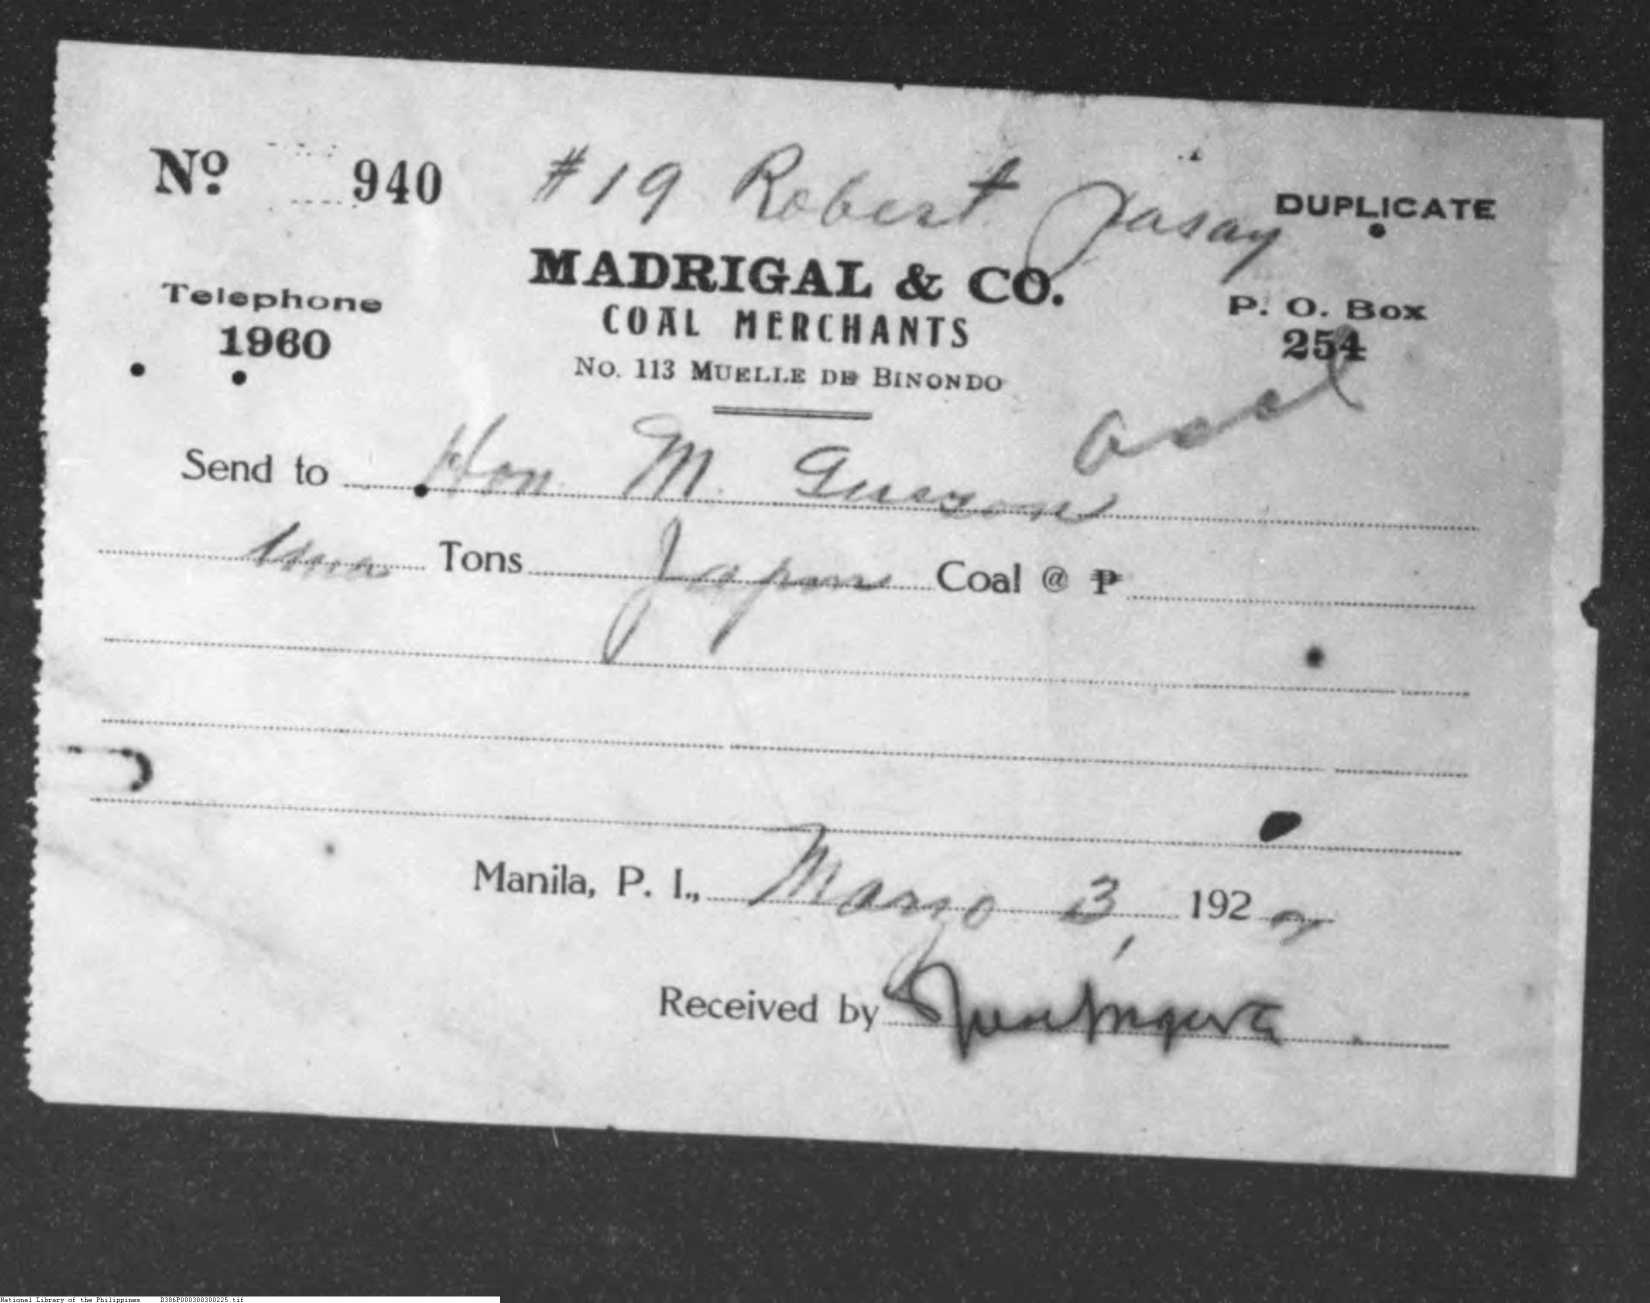 Nº 940 #19 Robert Pasay DUPLICATE
MADRIGAL & CO.
Telephone COAL MERCHANTS P. O. Box
1960 No. 113 MUELLE DE BINONDO 254
Send to Hon M. Quezon
Una Tons Japon Coal @ ₱
Manila, P. I., Marzo 3, 1922
Received by
National Library of the Philippines D386P000300300225.tif